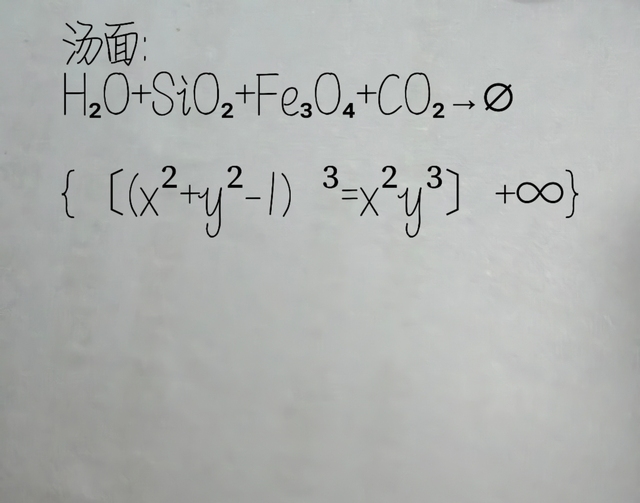 汤面:
H₂O+SiO₂+Fe₃O₄+CO₂→∅
{〔(x²+y²-1) ³=x²y³〕 +∞}